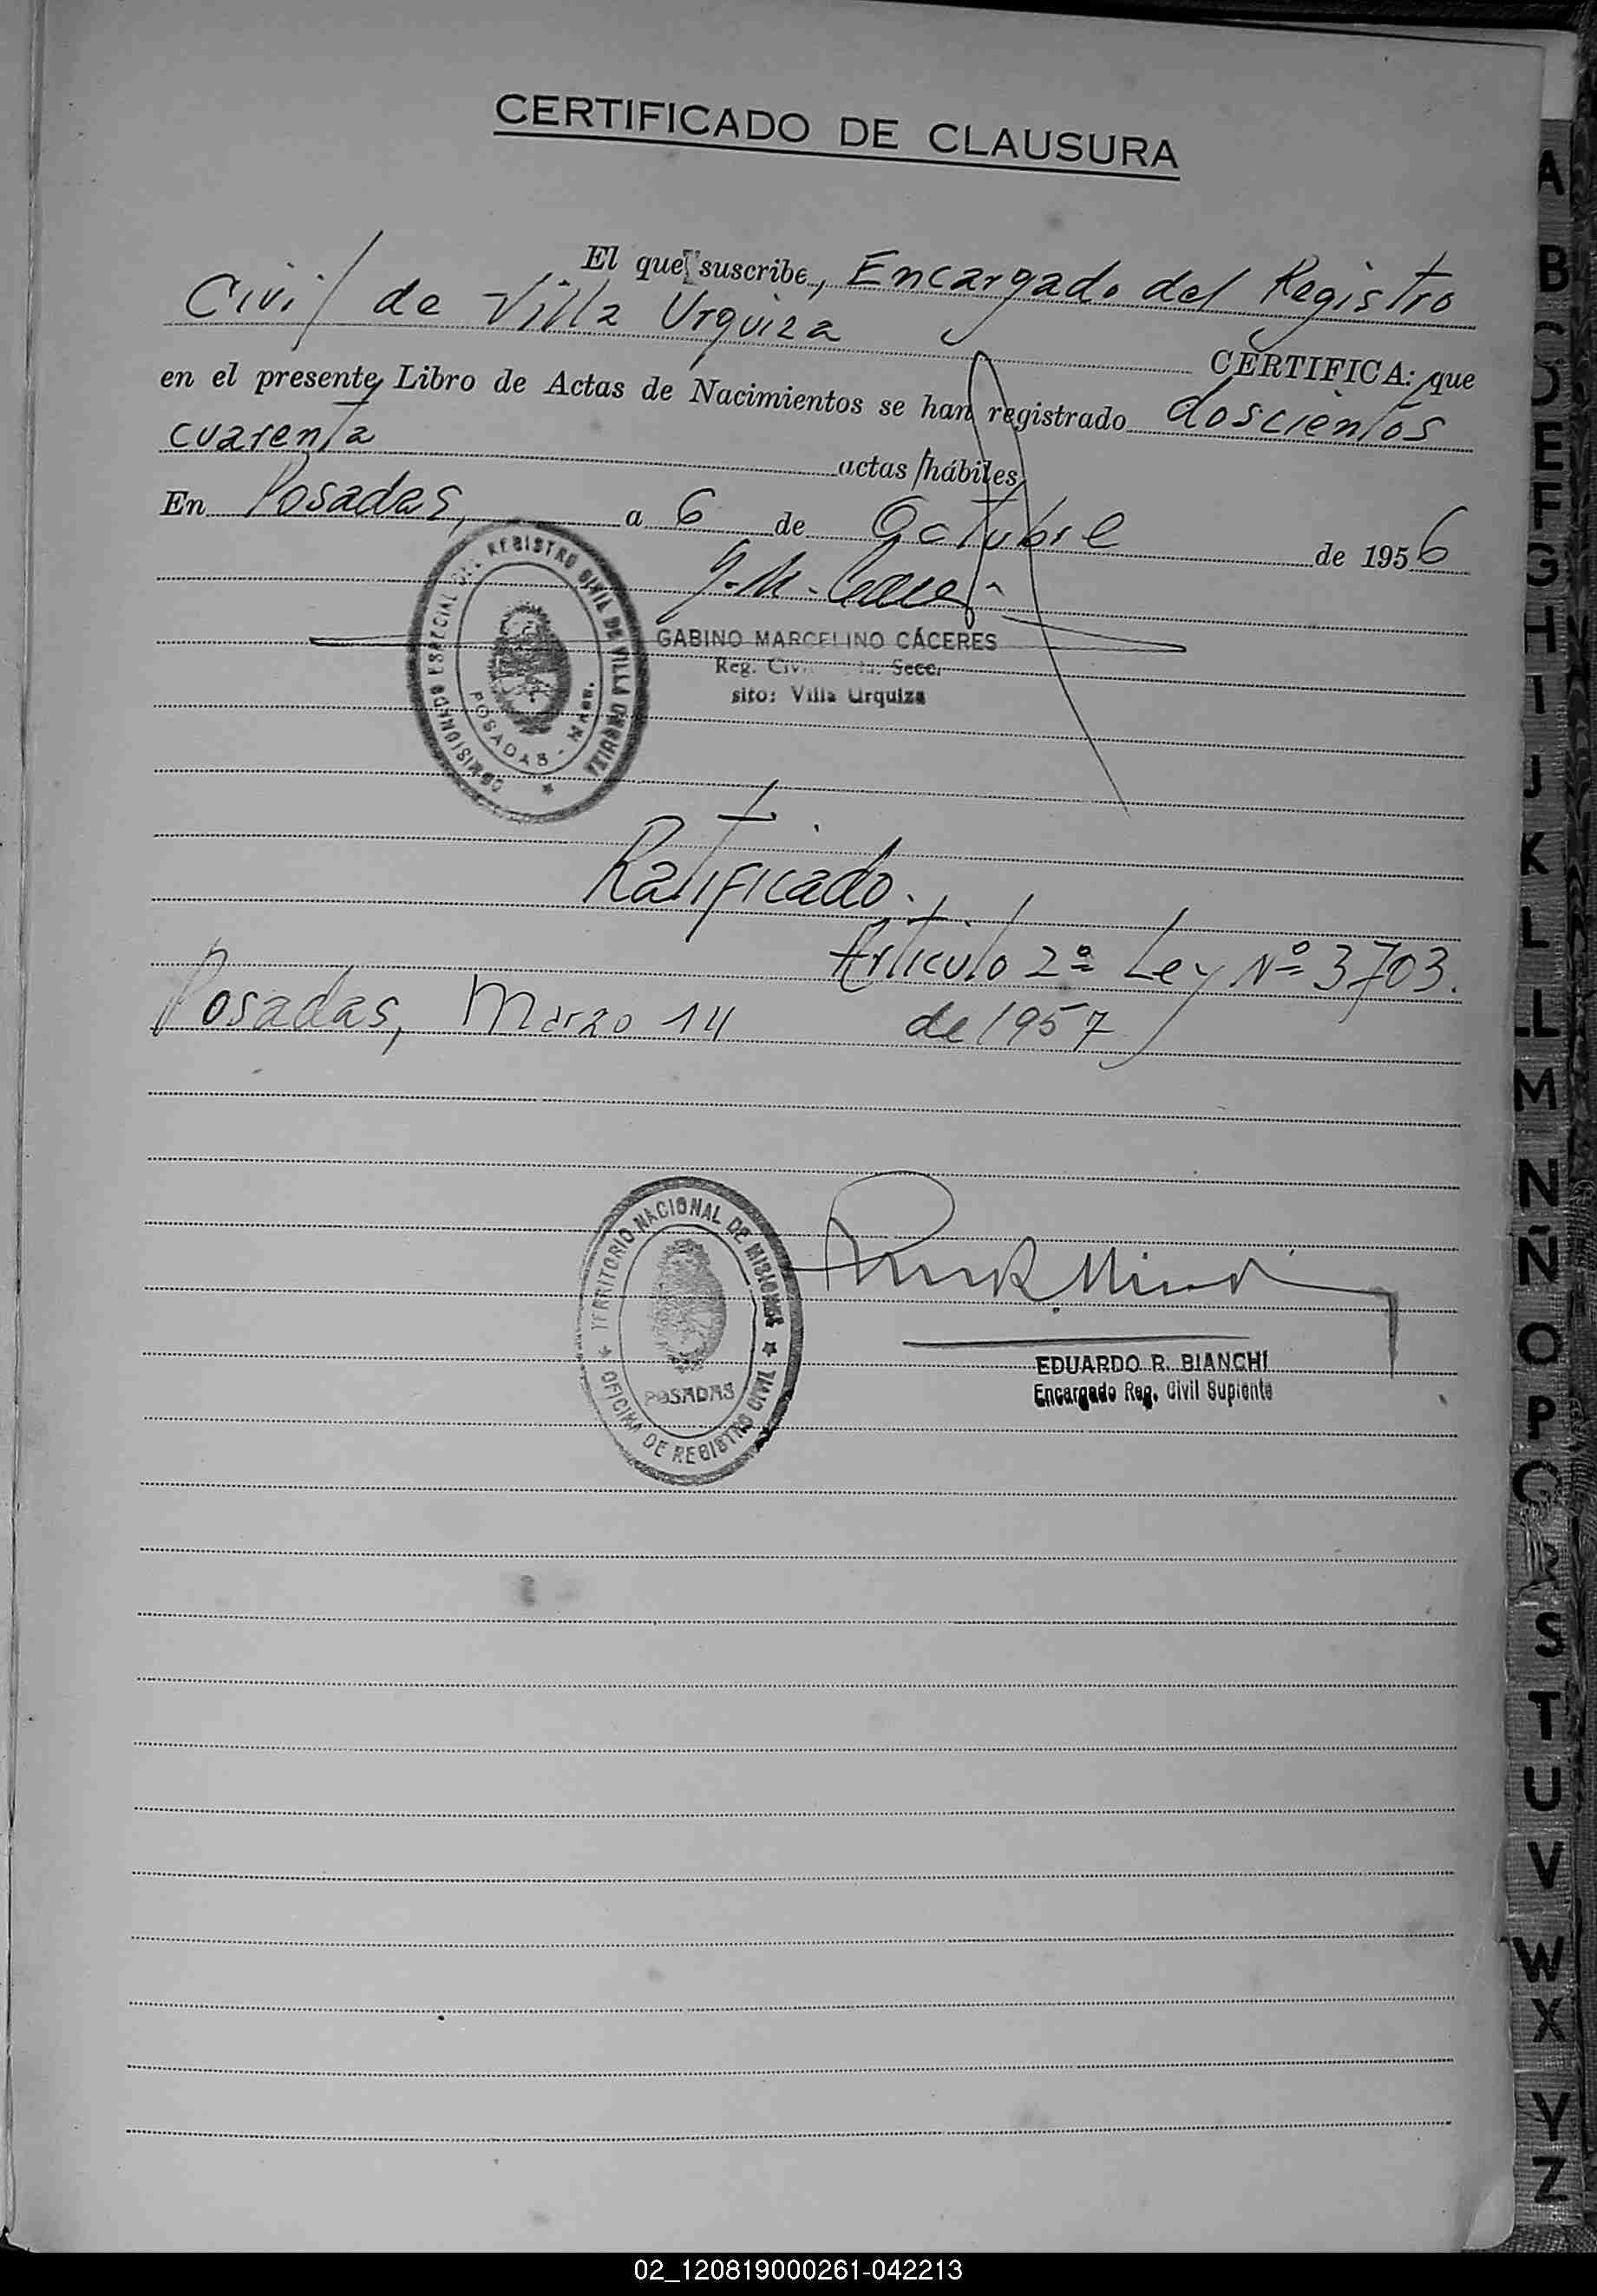 CERTIFICADO DE CLAUSURA
El que suscribe, Encargado del Registro
Civil de Villa Urquiza CERTIFICA: que
en el presente Libro de Actas de Nacimientos se han registrado doscientos
cuarenta actas hábiles
En Posadas, a 6 de Octubre de 1956
COMISIONADO ESPECIAL DEL REGISTRO CIVIL DE VILLA URQUIZA
POSADAS - Mnes.
GABINO MARCELINO CÁCERES
Reg. Secc.
sito: Villa Urquiza
Ratificado.
Articulo 2º Ley Nº 3703.
Posadas, Marzo 14 de 1957
TERRITORIO NACIONAL DE MISIONES
POSADAS
OFICINA DE REGISTRO CIVIL
EDUARDO R. BIANCHI
Encargado Reg. Civil Suplente
A
B
C
D
E
F
G
H
I
J
K
L
M
N
Ñ
O
P
Q
R
S
T
U
V
W
X
Y
Z
02_120819000261-042213